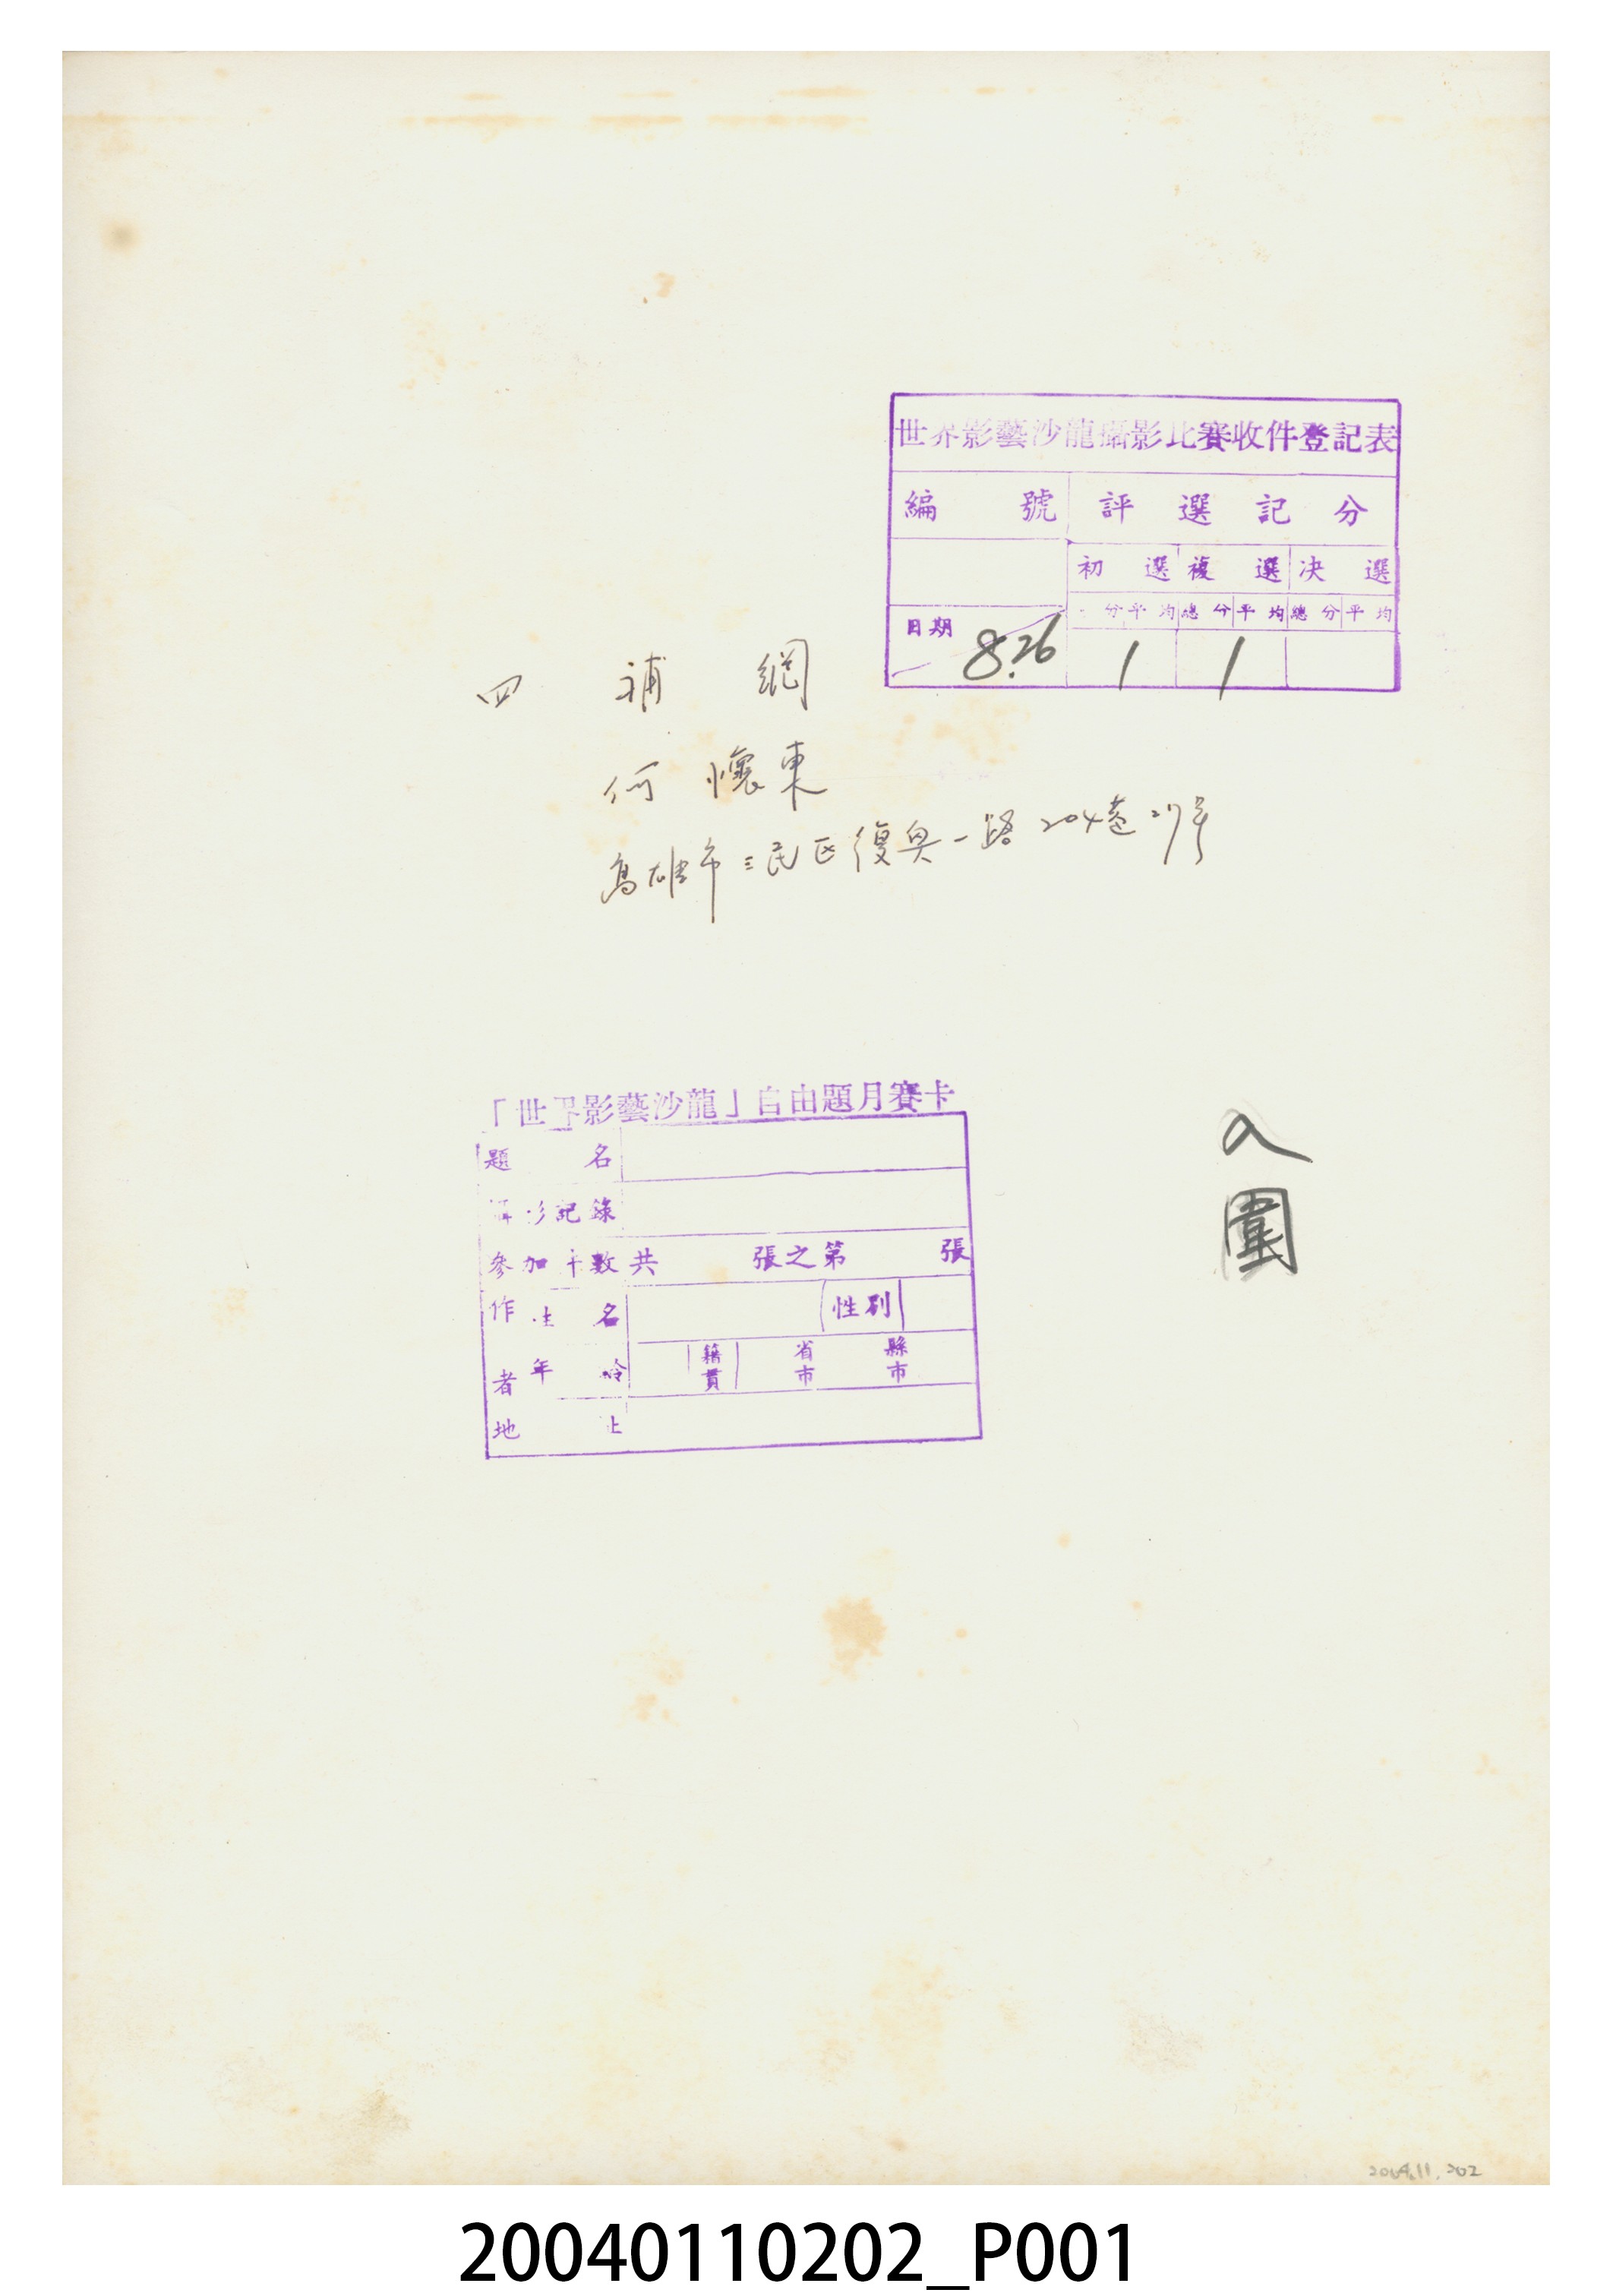 世界影藝沙龍攝影比賽收件登記表
編號 評選記分
初選 複選 決選
分 平均 總分 平均 總分 平均
日期 8.26 1 1
四 補網
何懷東
高雄市三民区復興一路204巷27号
「世界影藝沙龍」自由題月賽卡
題名
攝影記錄
參加卡數 共 張之第 張
作者 姓名 性別
年齡 籍貫 省市 縣市
地址
入圍
2004.11.202
20040110202_P001